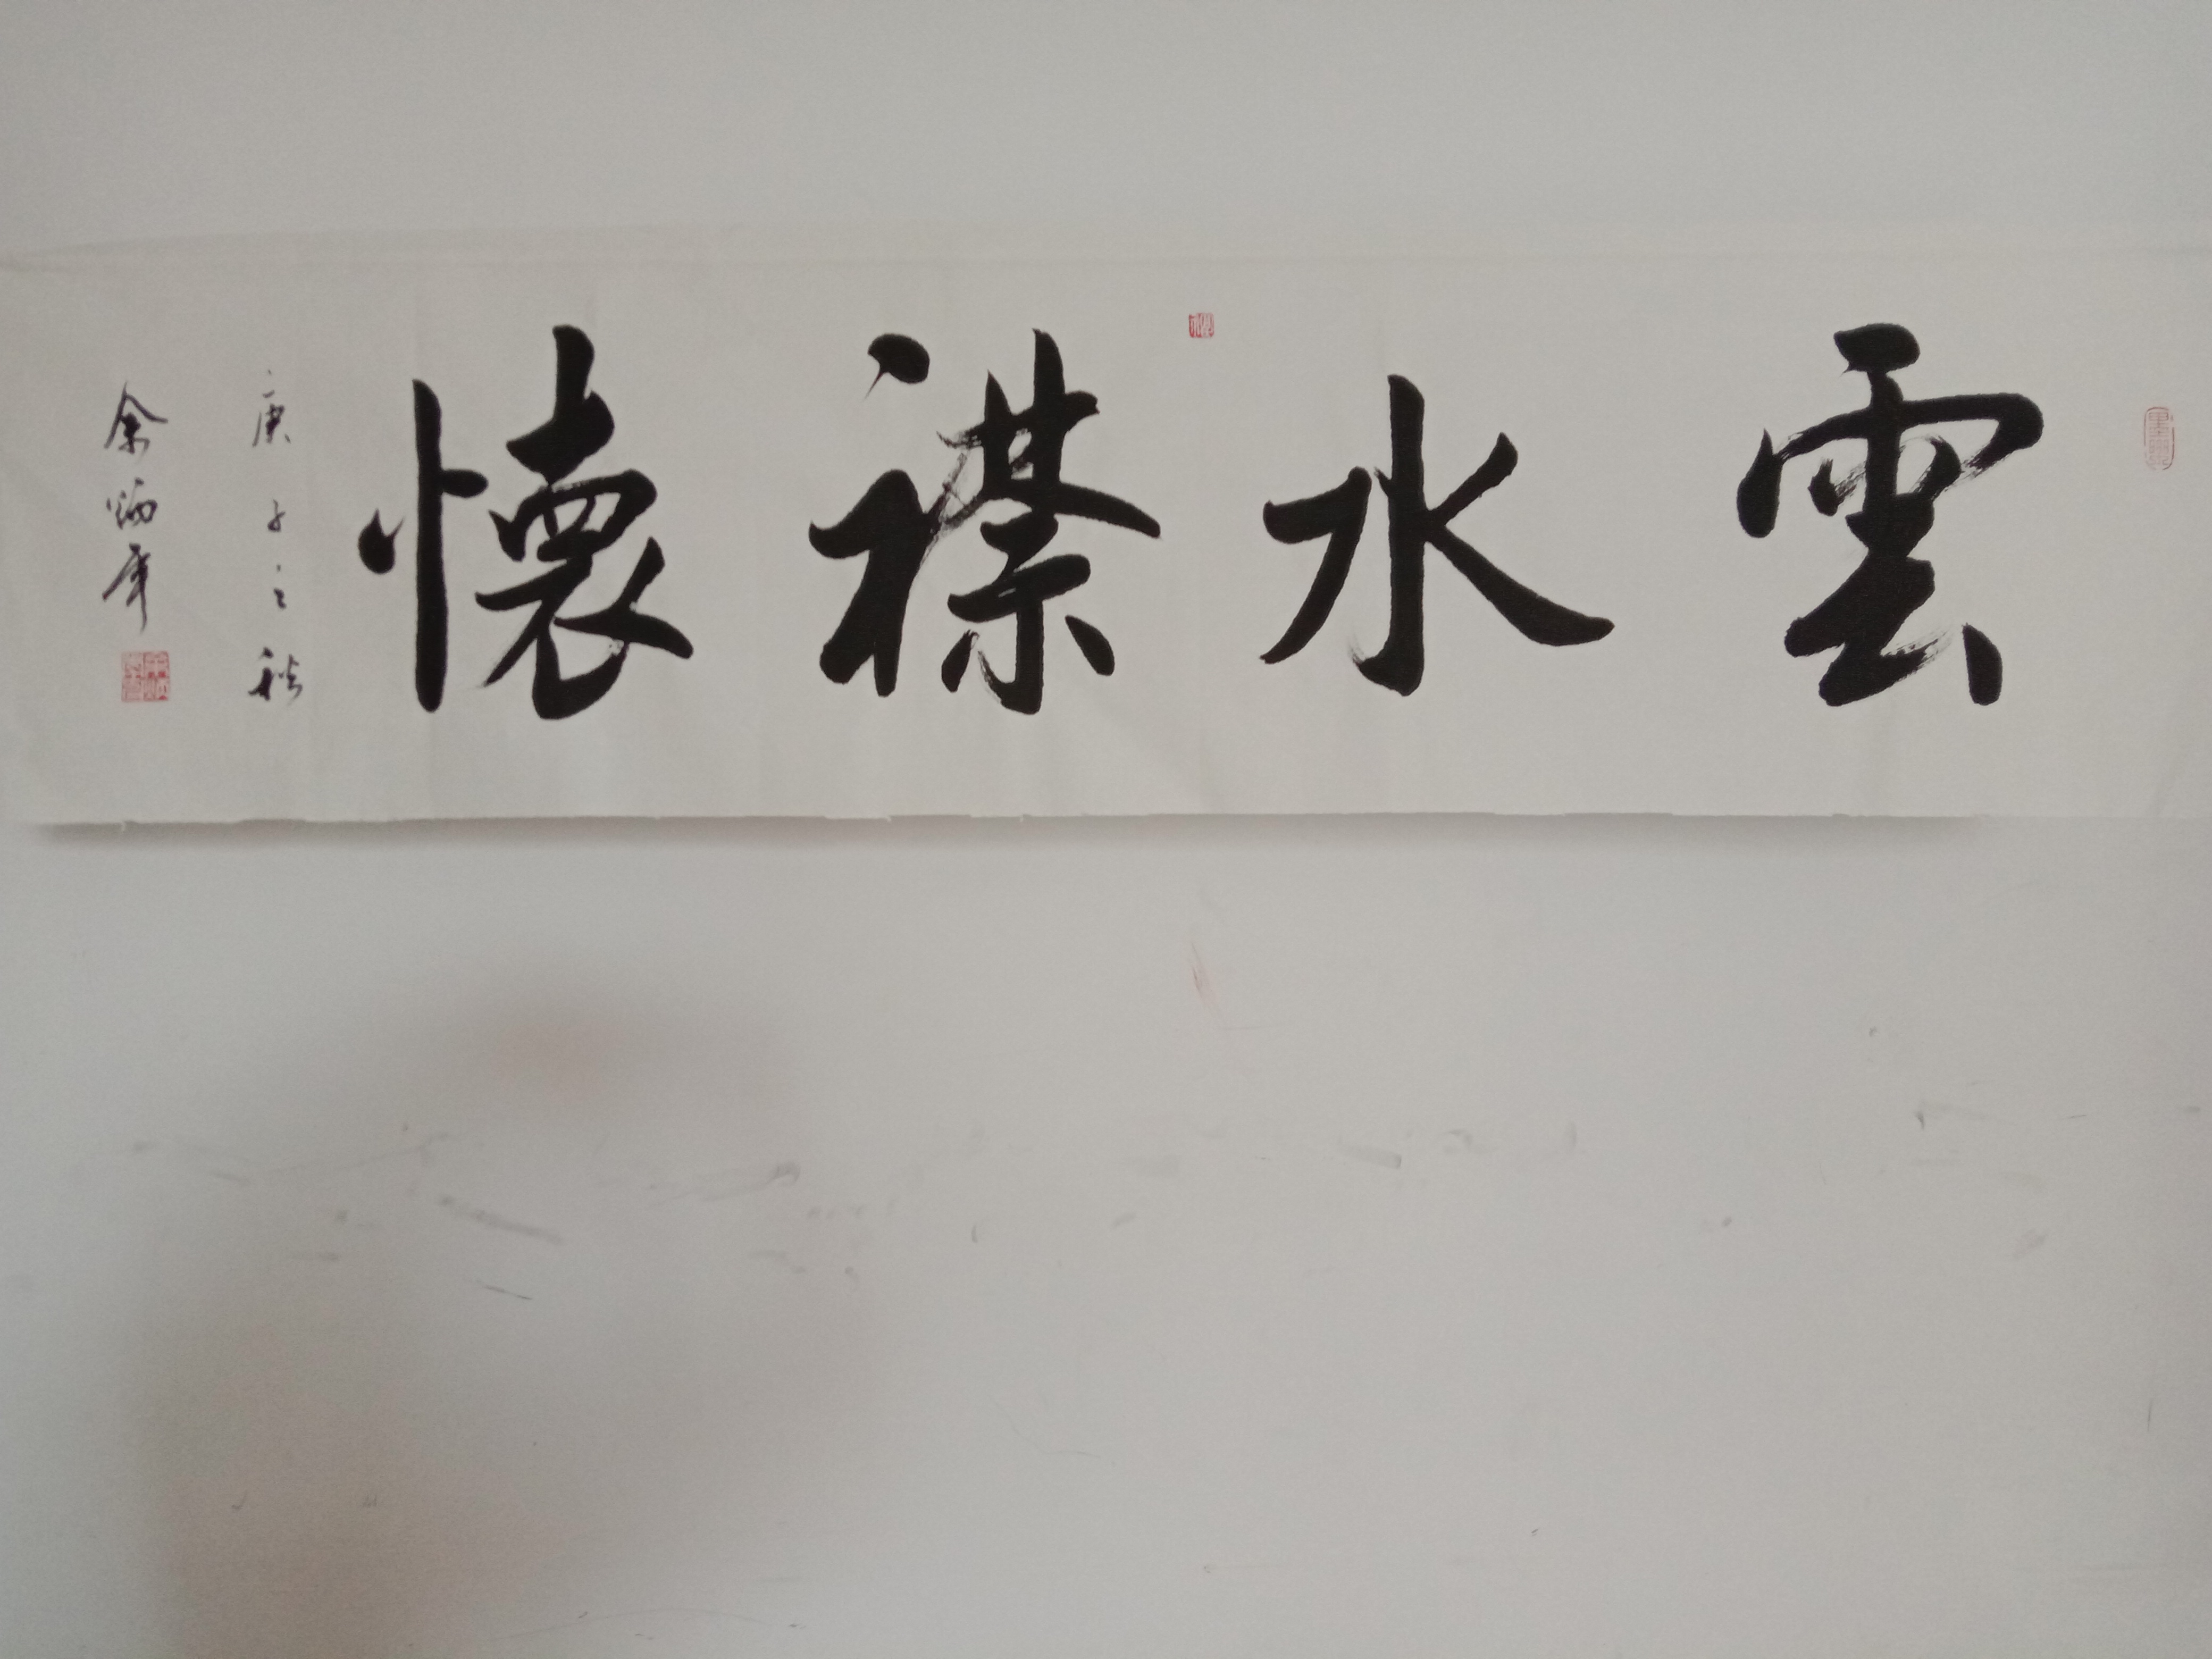 雲水襟懷
庚子之秋
余炳年